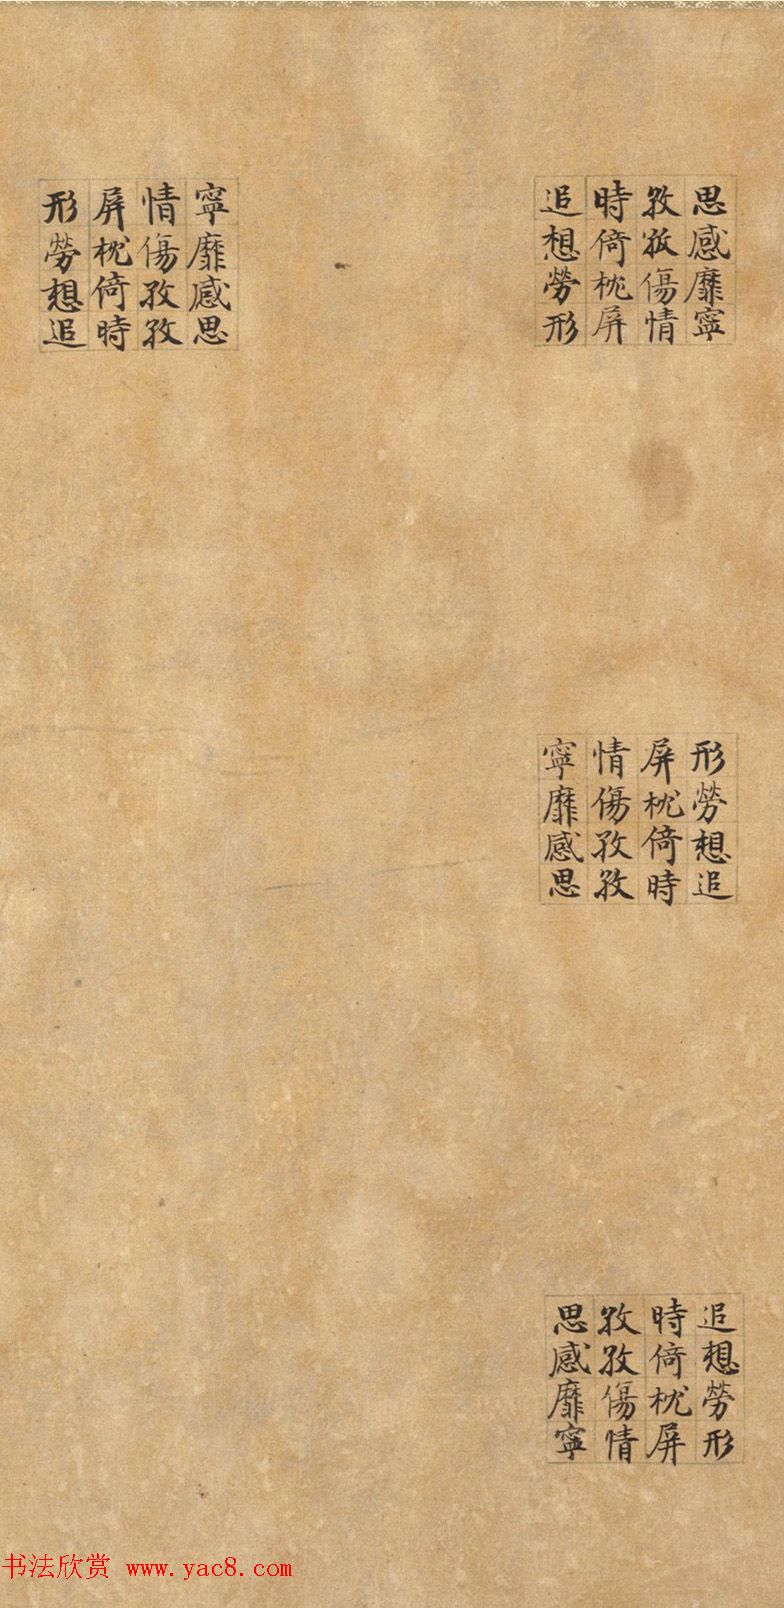 思感靡寧
孜孜傷情
時倚枕屏
追想勞形
寧靡感思
情傷孜孜
屏枕倚時
形勞想追
形勞想追
屏枕倚時
情傷孜孜
寧靡感思
追想勞形
時倚枕屏
孜孜傷情
思感靡寧
书法欣赏 www.yac8.com